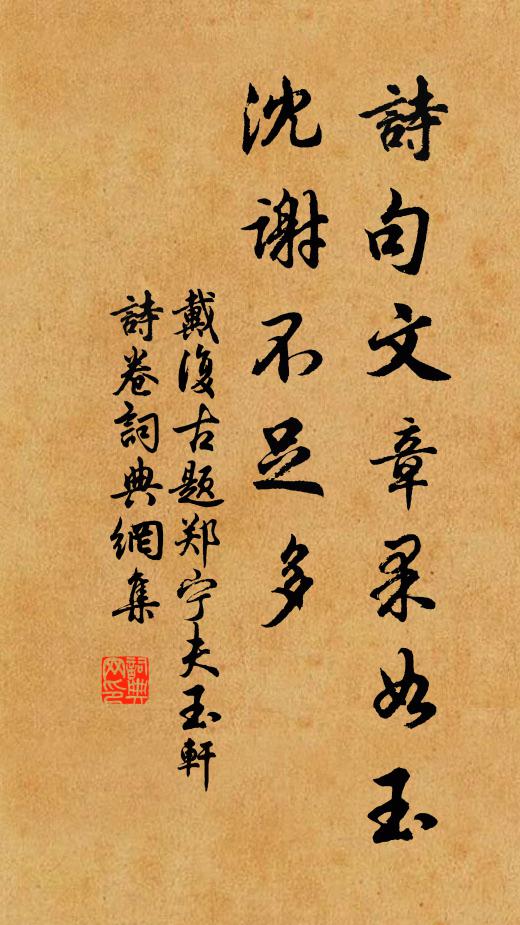 詩句文章果如玉
沈謝不足多
戴復古题郑宁夫玉軒
詩卷詞典網集
詞典網印